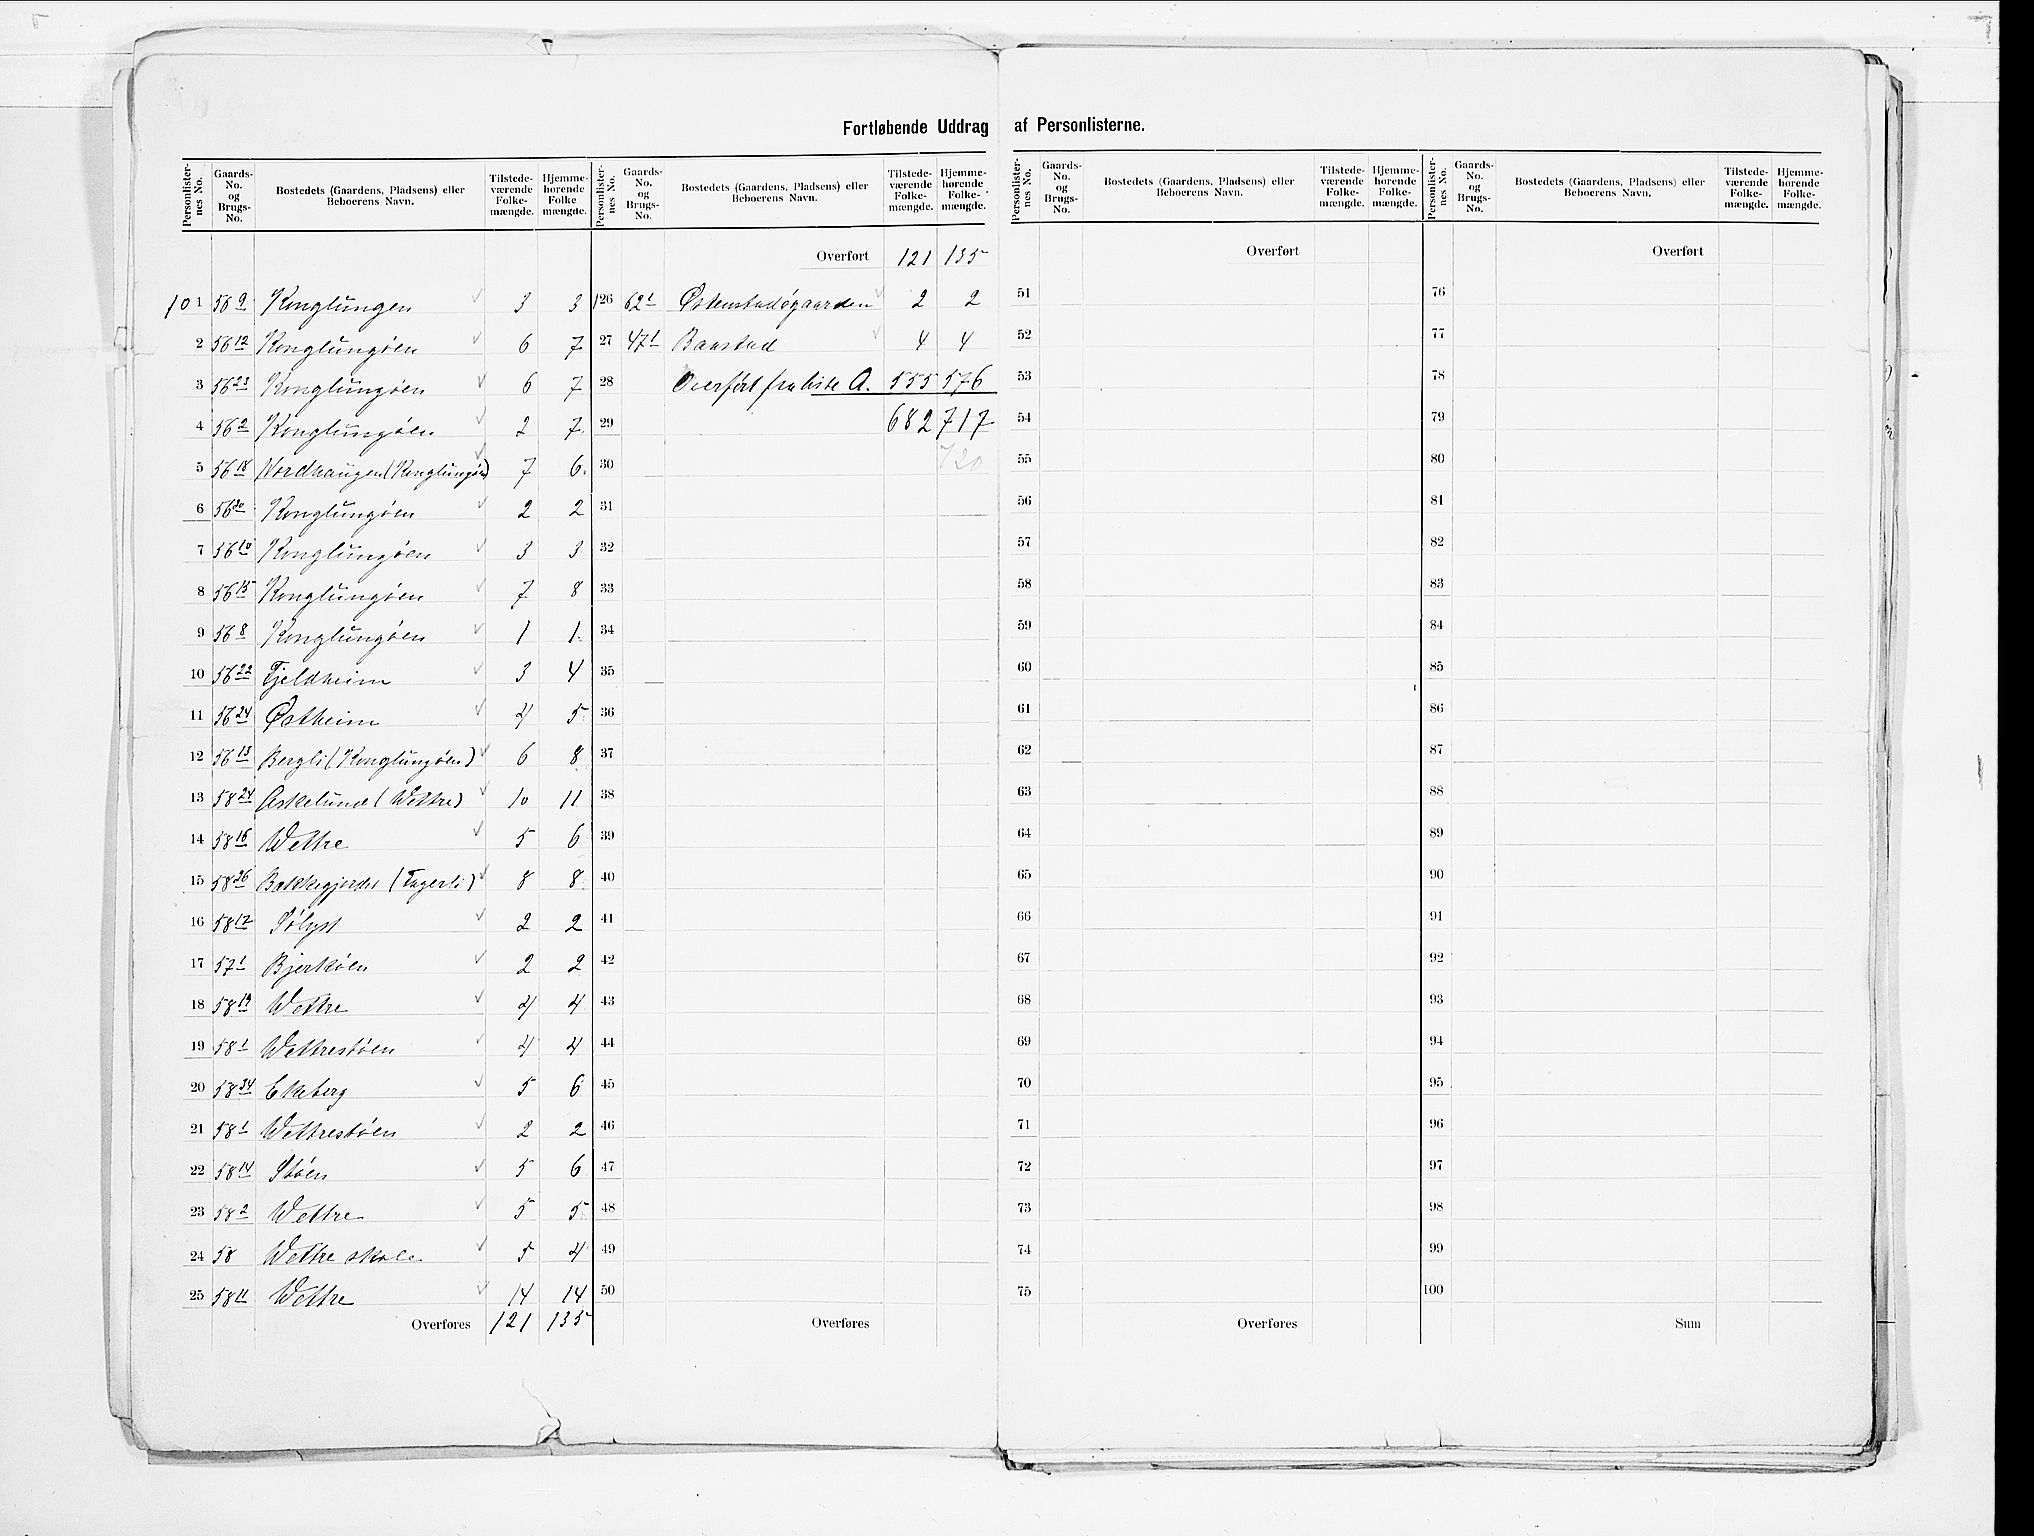 Fortløbende Uddrag af Personlisterne.
Personlister-nes No. | Gaards-No. og Brugs-No. | Bostedets (Gaardens, Pladsens) eller Beboerens Navn. | Tilstede-værende Folke-mængde. | Hjemme-hørende Folke mængde.
101 | 56 9 | Konglungen | 3 | 3
2 | 56 12 | Konglungøen | 6 | 7
3 | 56 23 | Konglungøen | 6 | 7
4 | 56 2 | Konglungøen | 2 | 7
5 | 56 18 | Nordhaugen (Konglungøen) | 7 | 6
6 | 56 20 | Konglungøen | 2 | 2
7 | 56 10 | Konglungøen | 3 | 3
8 | 56 15 | Konglungøen | 7 | 8
9 | 56 8 | Konglungøen | 1 | 1
10 | 56 22 | Fjeldheim | 3 | 4
11 | 56 24 | Østheim | 4 | 5
12 | 56 13 | Bergli (Konglungøen) | 6 | 8
13 | 58 24 | Askelund (Wettre) | 10 | 11
14 | 58 16 | Wettre | 5 | 6
15 | 58 26 | Bakkegjordet (Fagerli) | 8 | 8
16 | 58 17 | Sølyst | 2 | 2
17 | 57 1 | Bjerkøen | 2 | 2
18 | 58 19 | Wettre | 4 | 4
19 | 58 1 | Wettrestøen | 4 | 4
20 | 58 34 | Ekeberg | 5 | 6
21 | 58 1 | Wettrestøen | 2 | 2
22 | 58 14 | Støen | 5 | 6
23 | 58 2 | Wettre | 5 | 5
24 | 58 | Wettre skole | 5 | 4
25 | 58 11 | Wettre | 14 | 14
Overføres 121 135
Personlister-nes No. | Gaards-No. og Brugs-No. | Bostedets (Gaardens, Pladsens) eller Beboerens Navn. | Tilstede-værende Folke-mængde. | Hjemme-hørende Folke-mængde.
Overført 121 135
126 | 62 1 | Østenstadøgaarden | 2 | 2
27 | 47 1 | Baastad | 4 | 4
28 | Overført fra liste A. | 555 | 576
29 | 682 | 717
30 | 720
31
32
33
34
35
36
37
38
39
40
41
42
43
44
45
46
47
48
49
50
Overføres
Personlister-nes No. | Gaards-No. og Brugs-No. | Bostedets (Gaardens, Pladsens) eller Beboerens Navn. | Tilstede-værende Folke-mængde. | Hjemme-hørende Folke-mængde.
Overført
51
52
53
54
55
56
57
58
59
60
61
62
63
64
65
66
67
68
69
70
71
72
73
74
75
Overføres
Personlister-nes No. | Gaards-No. og Brugs-No. | Bostedets (Gaardens, Pladsens) eller Beboerens Navn. | Tilstede-værende Folke-mængde. | Hjemme-hørende Folke-mængde.
Overført
76
77
78
79
80
81
82
83
84
85
86
87
88
89
90
91
92
93
94
95
96
97
98
99
100
Sum